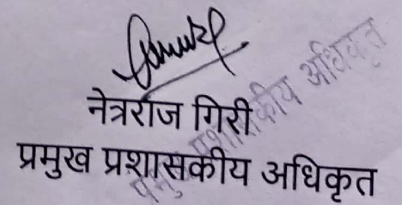 नेत्रराज गिरी
प्रमुख प्रशासकीय अधिकृत
प्रमुख प्रशासकीय अधिकृत